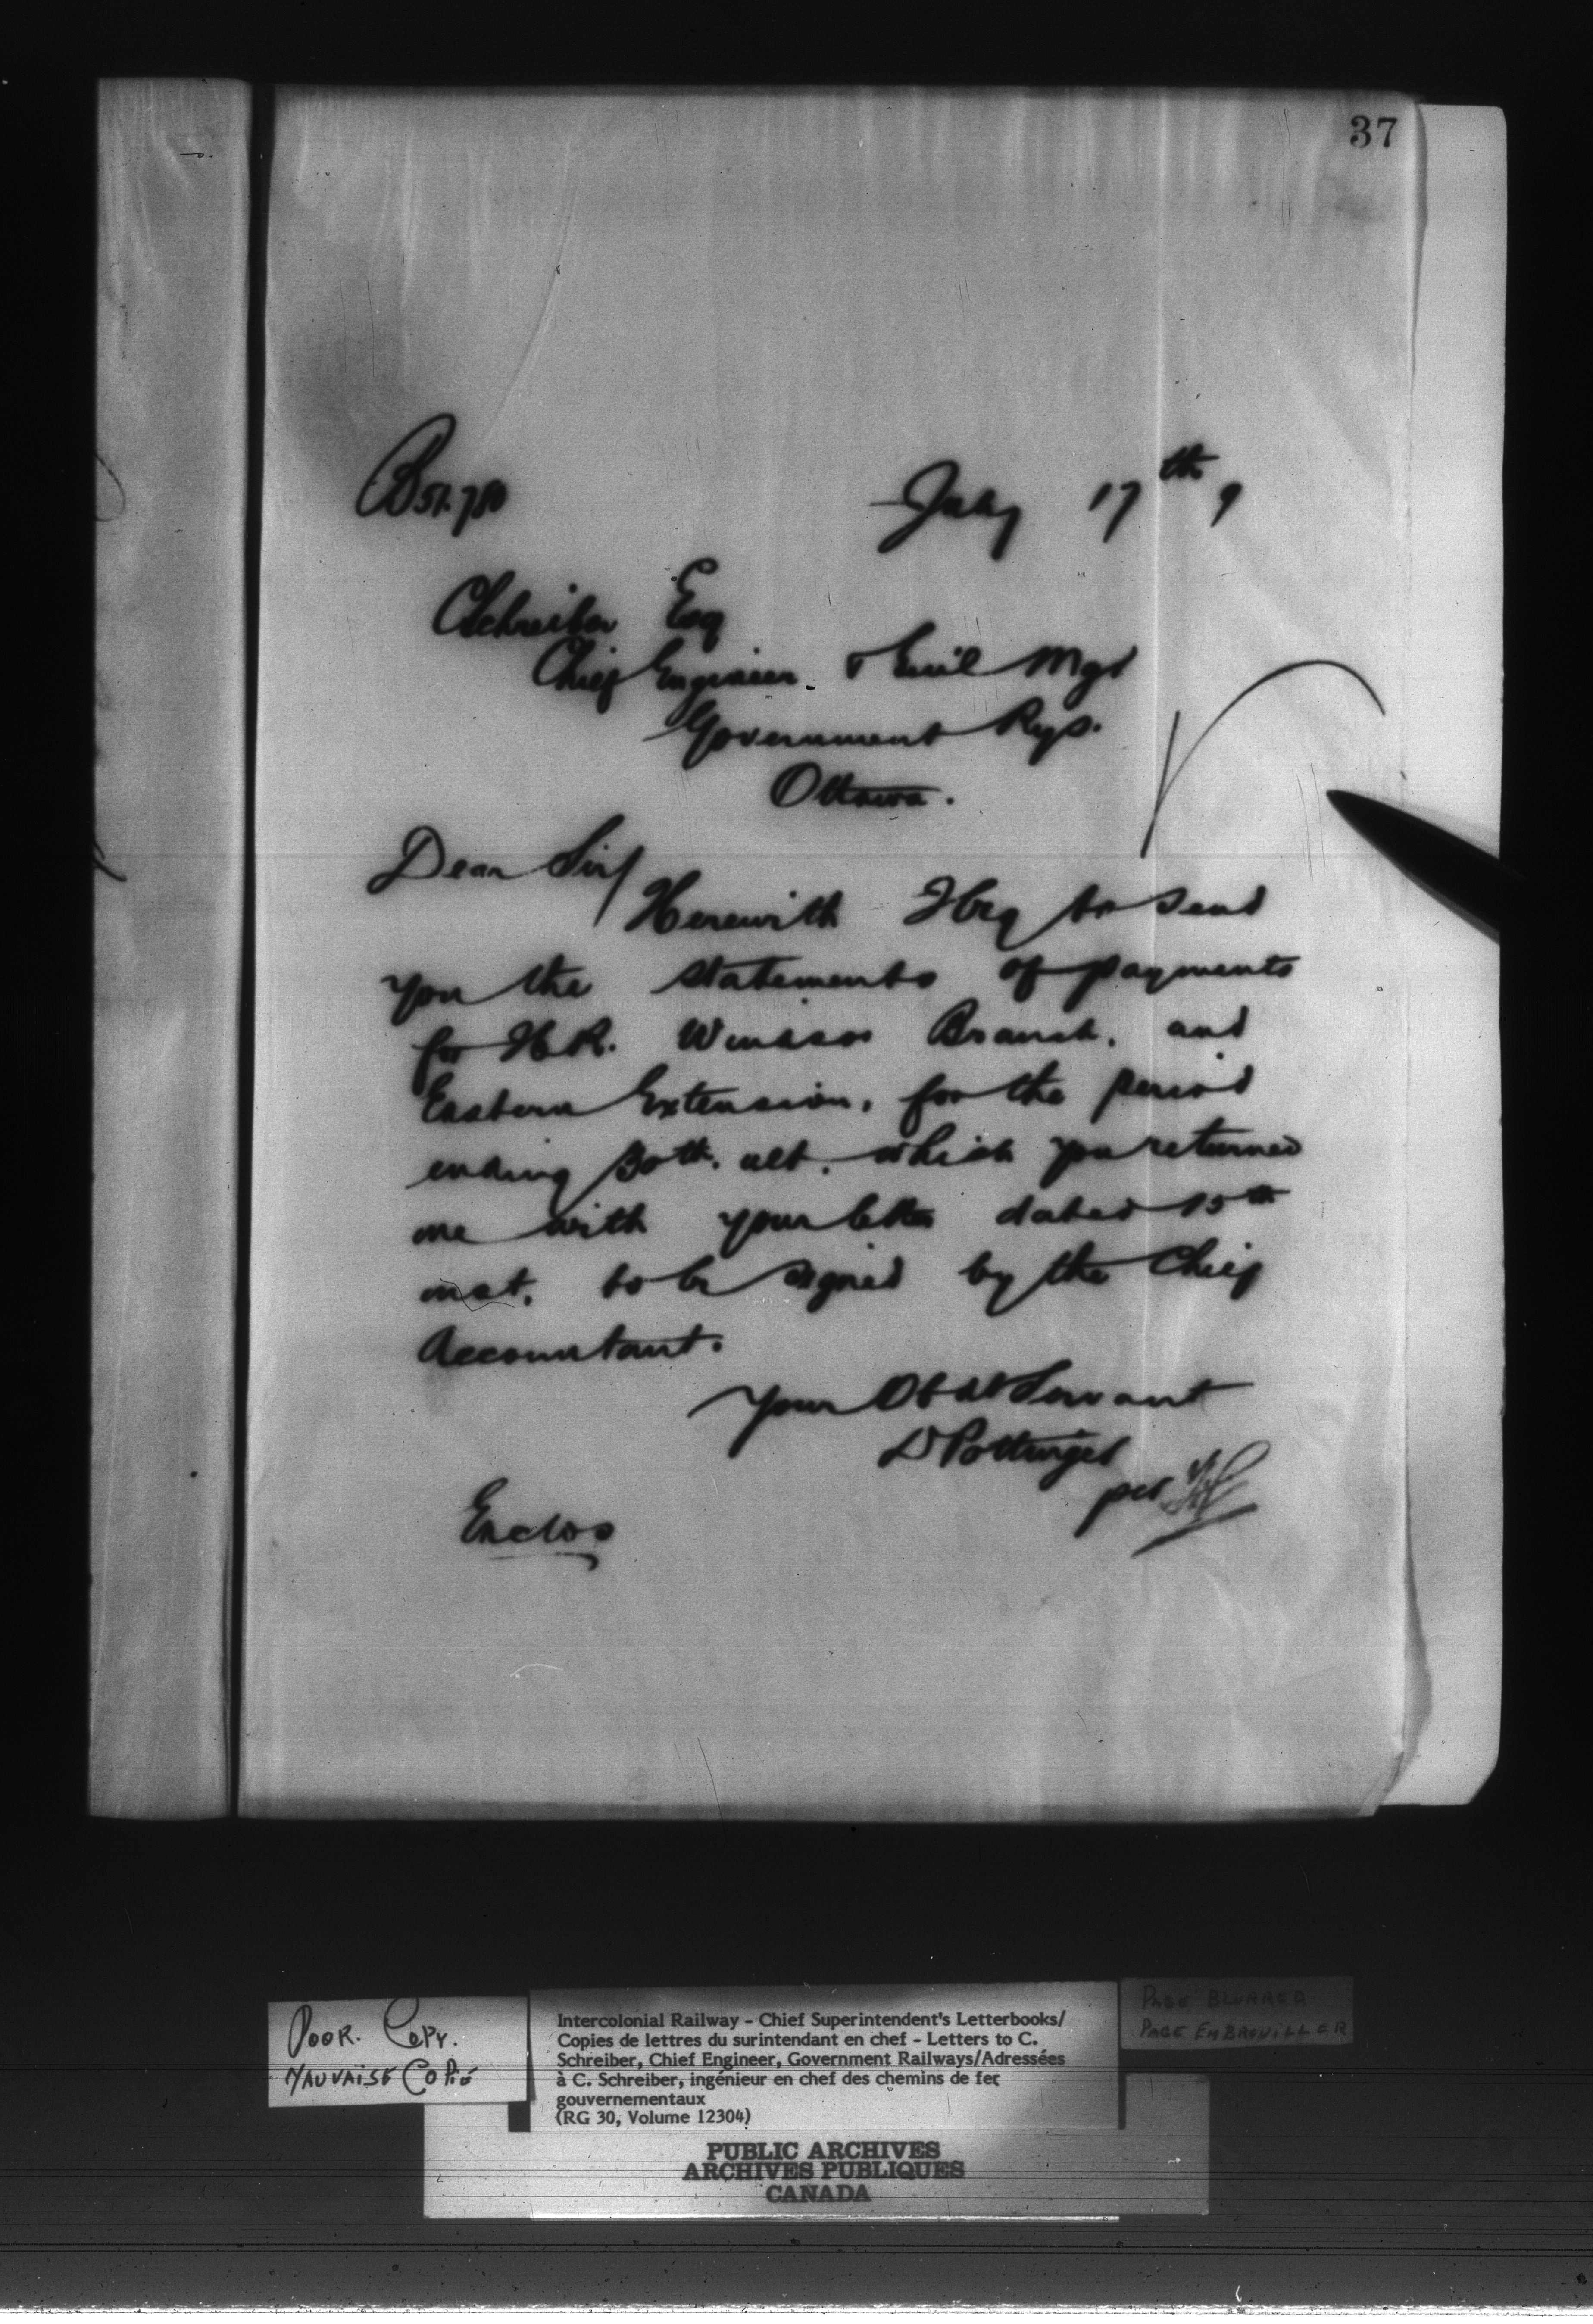 37
July 17th 9
CSchreiber Esq
Chief Engineer & Genl Mgr
Government Rys.
Ottawa.
Dear Sir/
Herewith I beg to send
you the statements of payments
for I.C.R. Windsor Branch, and
Eastern Extension, for the period
ending 30th. ult. which you returned
me with your letter dated 15th
inst. to be signed by the Chief
Accountant.
Your Obdt Servant
D Pottinger
per
Enclos
POOR. COPY.
MAUVAISE COPIE
Intercolonial Railway - Chief Superintendent's Letterbooks/
Copies de lettres du surintendant en chef - Letters to C.
Schreiber, Chief Engineer, Government Railways/Adressées
à C. Schreiber, ingénieur en chef des chemins de fer
gouvernementaux
(RG 30, Volume 12304)
PAGE BLURRED
PAGE EMBROUILLER
PUBLIC ARCHIVES
ARCHIVES PUBLIQUES
CANADA